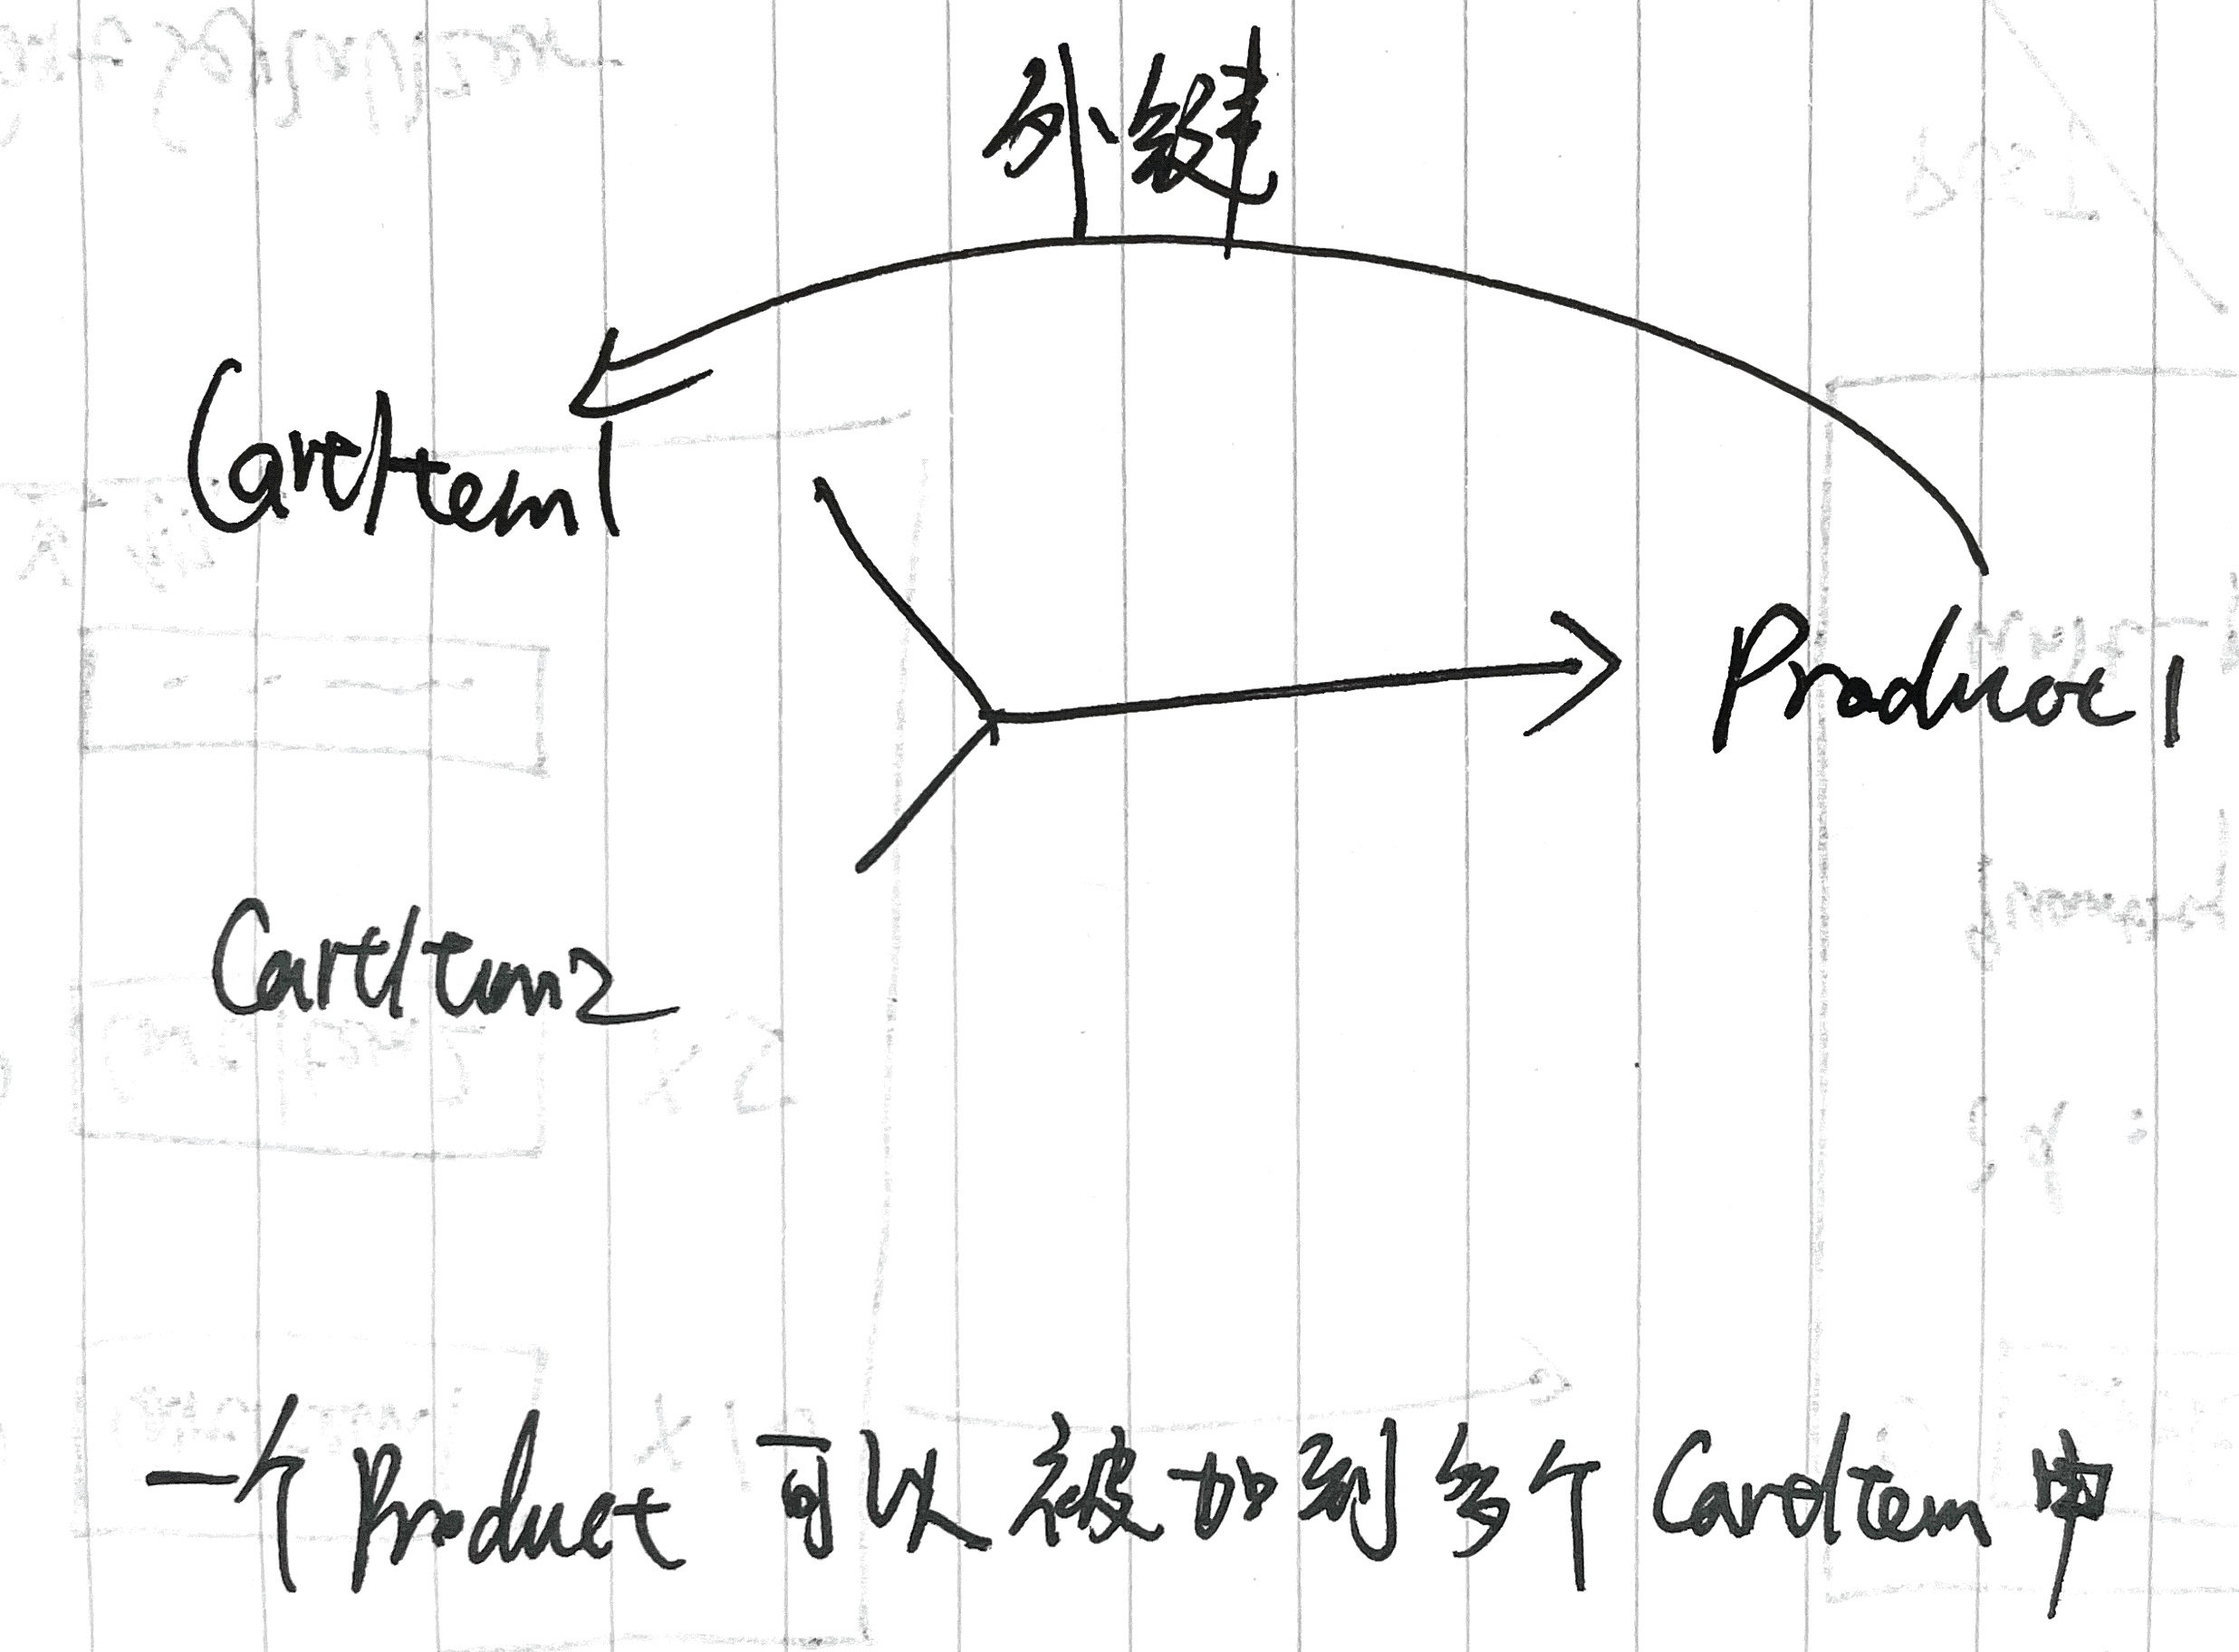 外键
CartItem1
Product1
CartItem2
一个Product 可以被加到多个 CartItem 中